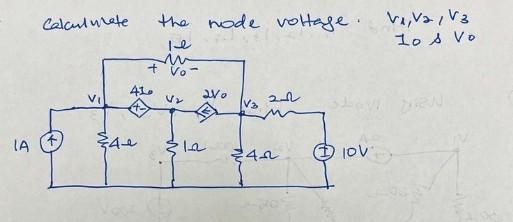 Calculate the node voltage. V1, V2, V3
Io & Vo
1Ω
+ Vo -
V1 4Io V2 2Vo V3 2Ω
+-
1A 4Ω 1Ω 4Ω 10V